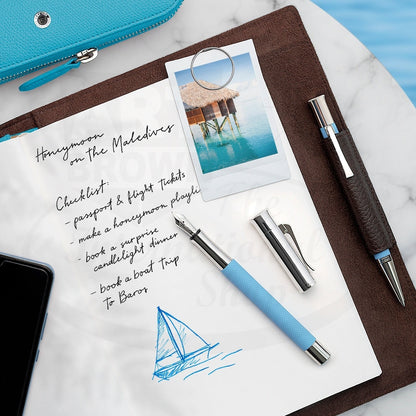 Honeymoon
on the Maledives
Checklist:
- passport & flight tickets
- make a honeymoon playlist
- book a surprise
candlelight dinner
- book a boat trip
to Baros